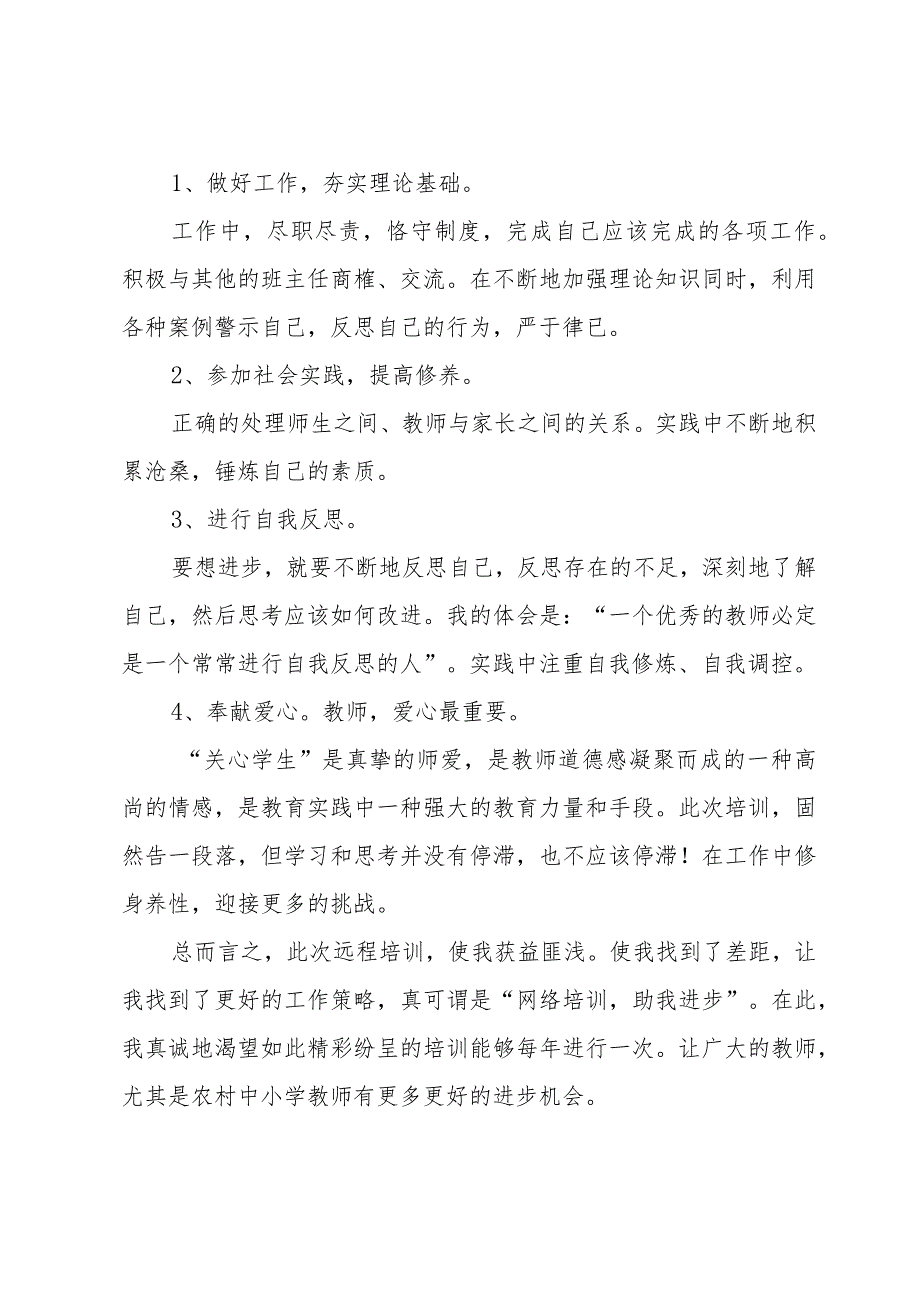 1、做好工作，夯实理论基础。
工作中，尽职尽责，恪守制度，完成自己应该完成的各项工作。
积极与其他的班主任商榷、交流。在不断地加强理论知识同时，利用
各种案例警示自己，反思自己的行为，严于律已。
2、参加社会实践，提高修养。
正确的处理师生之间、教师与家长之间的关系。实践中不断地积
累沧桑，锤炼自己的素质。
3、进行自我反思。
要想进步，就要不断地反思自己，反思存在的不足，深刻地了解
自己，然后思考应该如何改进。我的体会是：“一个优秀的教师必定
是一个常常进行自我反思的人”。实践中注重自我修炼、自我调控。
4、奉献爱心。教师，爱心最重要。
“关心学生”是真挚的师爱，是教师道德感凝聚而成的一种高
尚的情感，是教育实践中一种强大的教育力量和手段。此次培训，固
然告一段落，但学习和思考并没有停滞，也不应该停滞！在工作中修
身养性，迎接更多的挑战。
总而言之，此次远程培训，使我获益匪浅。使我找到了差距，让
我找到了更好的工作策略，真可谓是“网络培训，助我进步”。在此，
我真诚地渴望如此精彩纷呈的培训能够每年进行一次。让广大的教师，
尤其是农村中小学教师有更多更好的进步机会。